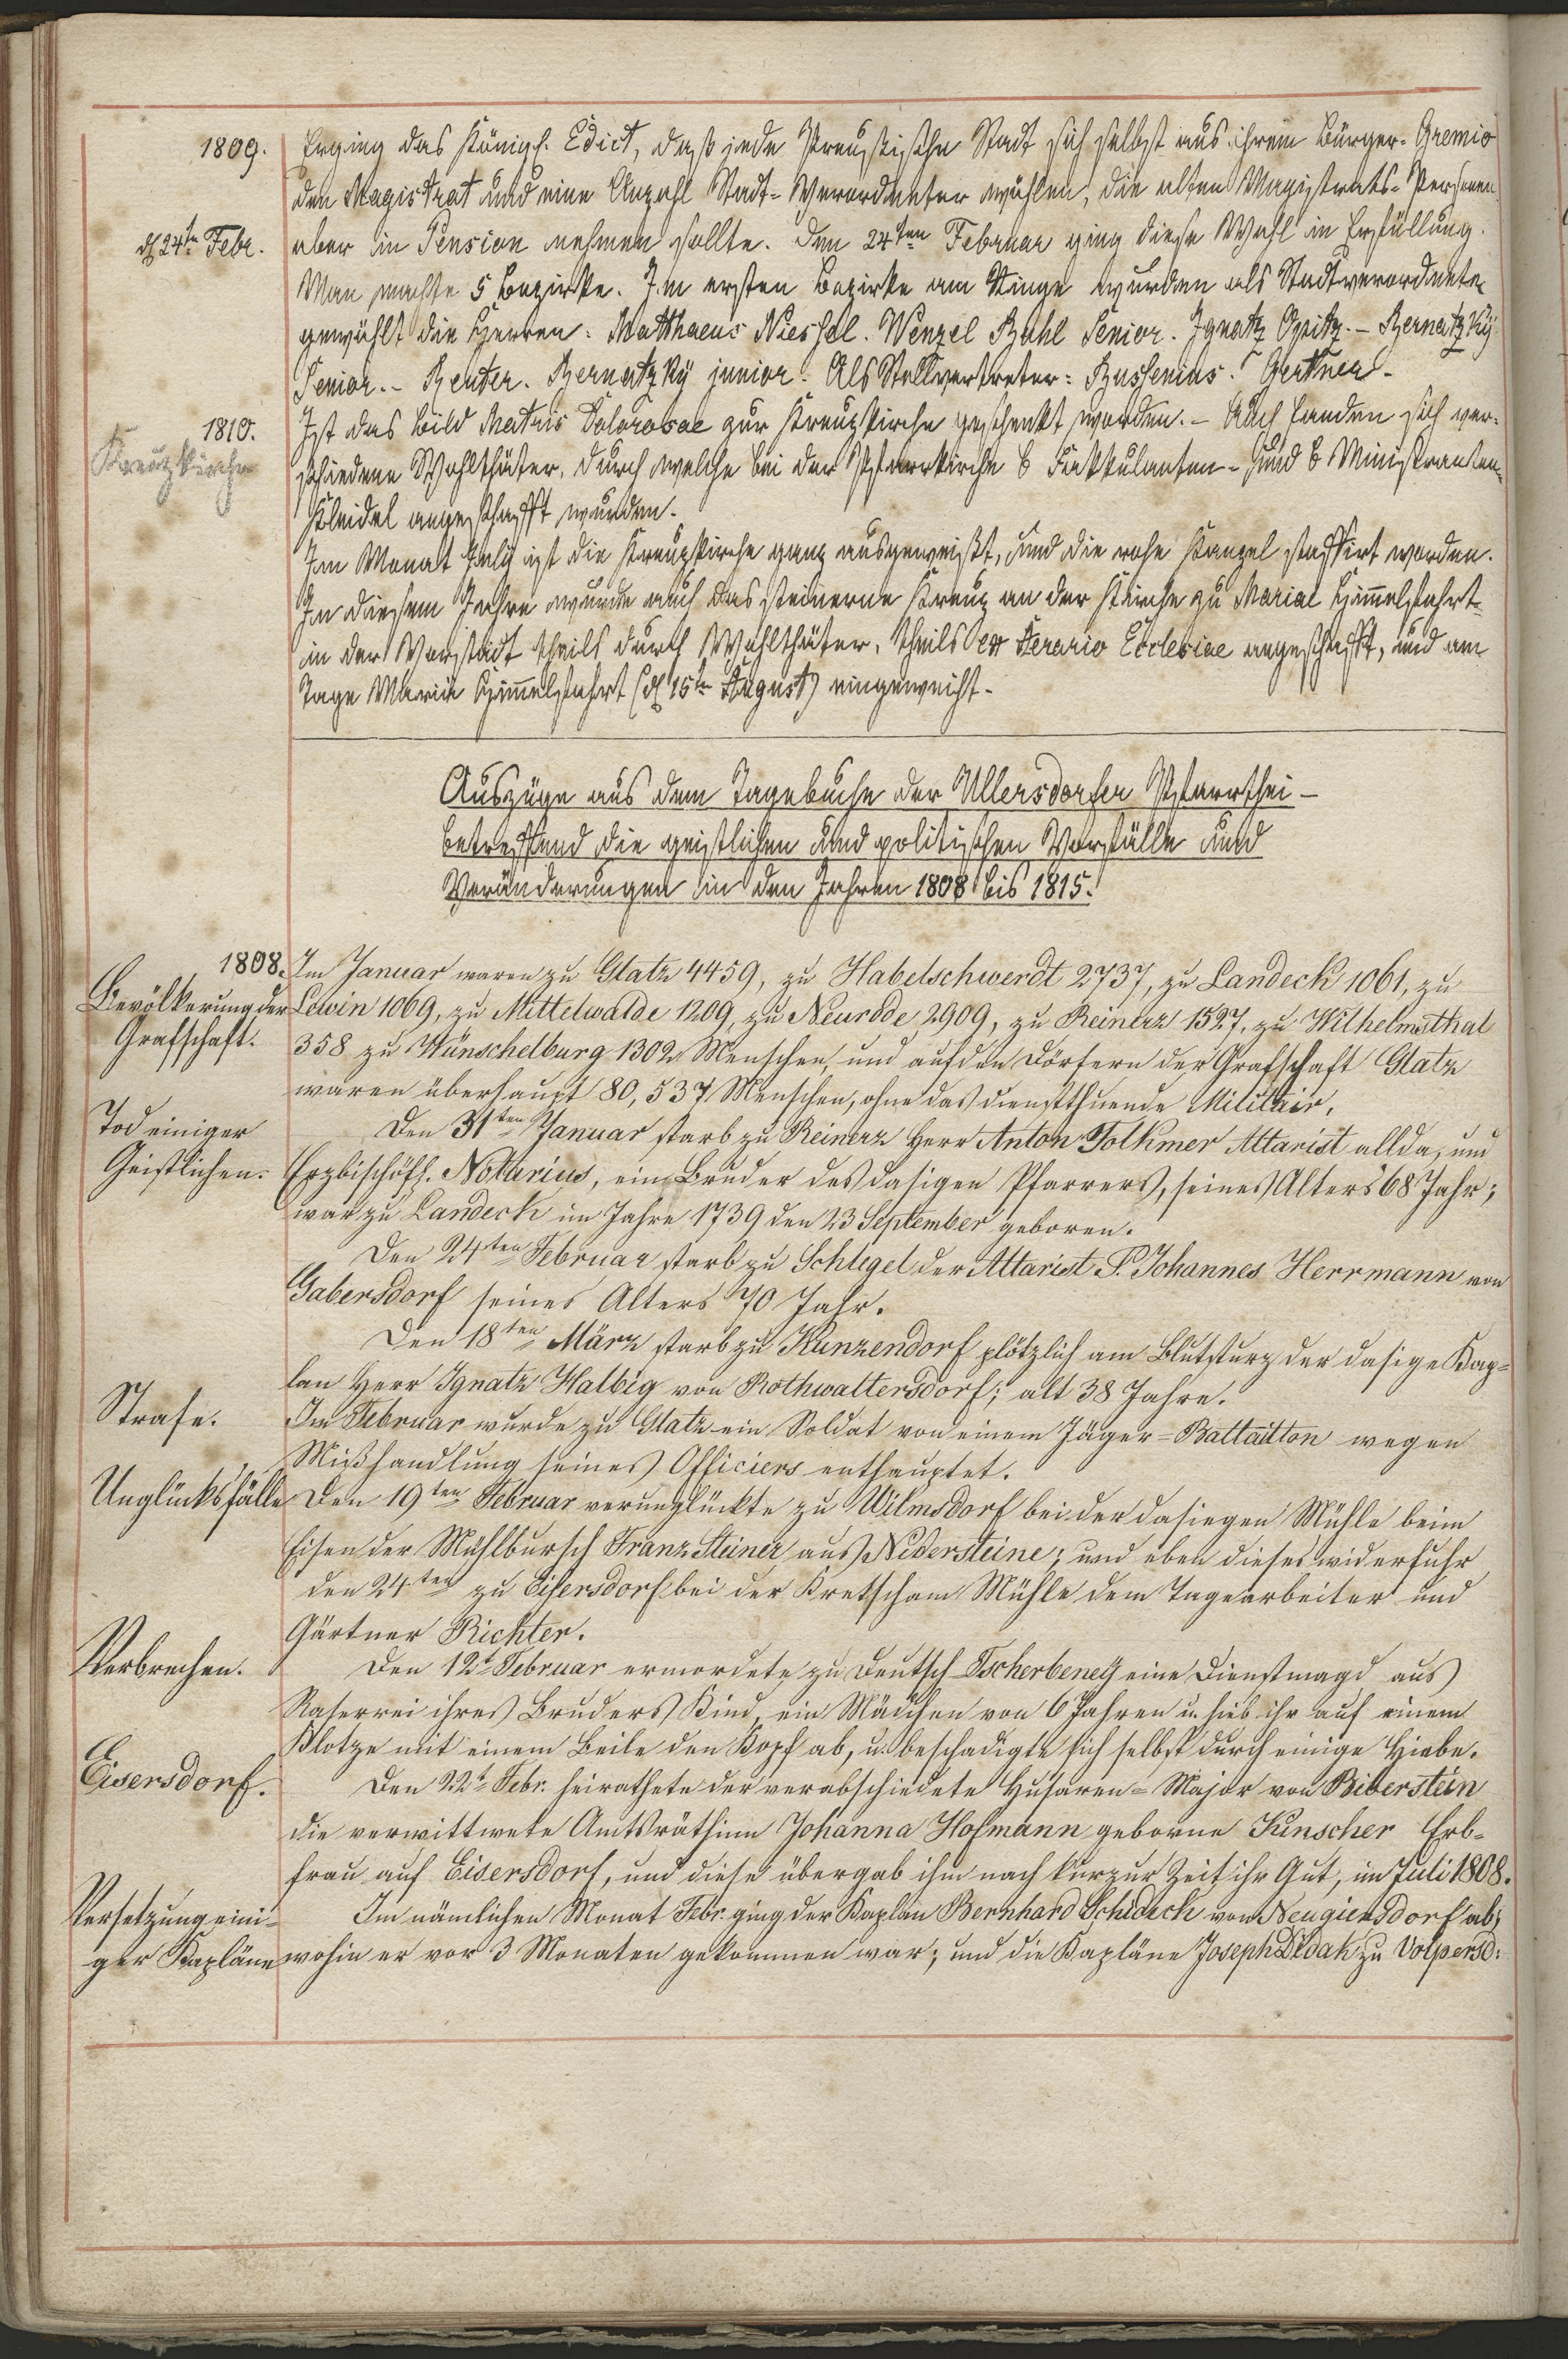 1809. Erging das Königl. Edict, daß jede Preußische Stadt sich selbst aus ihrem Bürger-Gremio
den Magistrat und eine Anzahl Stadt-Verordneter wählen, die alten Magistrats-Personen
d 24ten Febr. aber in Pension nehmen sollte. Den 24ten Februar ging diese Wahl in Erfüllung.
Man machte 5 Bezirke. Im ersten Bezirke am Ringe wurden als Stadtverordnete
gewählt die Herren: Matthaeus Niessel. Wenzel Buhl Senior. Ignatz Opitz. – Bernatzky
Senior. – Reuter. Bernatzky junior. Als Stellvertreter: Bussenius. Gertner.
1810. Ist das Bild Matris Dolorosae zur Kreuzkirche geschenkt worden. – Auch fanden sich ver-
Kreuzkirche schiedene Wohlthäter, durch welche bei der Pfarrkirche 6 Fakkulanten- und 6 Ministranten-
Kleidel angeschafft wurden.
Im Monat July ist die Kreuzkirche ganz ausgeweißt, und die rohe Kanzel staffirt worden.
In diesem Jahre wurde auch das steinerne Kreuz an der Kirche zu Mariae Himmelfahrt
in der Vorstadt theils durch Wohlthäter, theils ex Aerario Ecclesiae angeschafft, und am
Tage Mariä Himmelfahrt (d 15ten August) eingeweiht.
Auszüge aus dem Tagebuche der Ullersdorfer Pfarrthei –
betreffend die geistlichen und politischen Vorfälle und
Veränderungen in den Jahren 1808 bis 1815.
1808. Im Januar waren zu Glatz 4459, zu Habelschwerdt 2737, zu Landeck 1061, zu
Bevölkerung der Lewin 1069, zu Mittelwalde 1209, zu Neurode 2909, zu Reinerz 1527, zu Wilhelmsthal
Grafschaft. 358 zu Wünschelburg 1302 Menschen, und auf den Dörfern der Grafschaft Glatz
waren überhaupt 80,537 Menschen, ohne das dienstthuende Militair.
Tod einiger Den 31ten Januar starb zu Reinerz Herr Anton Tolkmer Altarist allda, und
Geistlichen. Erzbischöfl. Notarius, ein Bruder des dasigen Pfarrers, seines Alters 68 Jahr;
war zu Landeck im Jahre 1739 den 23 September geboren.
Den 24ten Februar starb zu Schlegel der Altarist P. Johannes Herrmann von
Gabersdorf seines Alters 70 Jahr.
Den 18ten März starb zu Kunzendorf plötzlich am Blutsturz der dasige Kap-
lan Herr Ignatz Halbig von Rothwaltersdorf; alt 38 Jahre.
Strafe. Im Februar wurde zu Glatz ein Soldat von einem Jäger-Battaillon wegen
Mißhandlung seines Officiers enthauptet.
Unglücksfälle Den 19ten Februar verunglückte zu Wilmsdorf bei der dasiegen Mühle beim
Eisen der Mühlbursch Franz Steiner aus Nidersteine; und eben dieses widerfuhr
den 24ten zu Eisersdorf bei der Kretscham Mühle dem Tagearbeiter und
Gärtner Richter.
Verbrechen. Den 12t Februar ermordete zu Deutsch-Tscherbeney eine Dienstmagd aus
Raserrei ihres Bruders Kind, ein Mädchen von 6 Jahren u. hieb ihr auf einem
Klotze mit einem Beile den Kopf ab, u. beschadigte sich selbst durch einige Hiebe.
Eisersdorf. Den 22t Febr. heirathete der verabschiedete Husaren-Major von Biberstein
die verwittwete Amtsräthinn Johanna Hofmann geborne Kinscher Erb-
frau auf Eisersdorf, und diese übergab ihm nach kurzer Zeit ihr Gut, im Juli 1808.
Versetzung eini- Im nämlichen Monat Febr. ging der Kaplan Bernhard Schideck von Neugiersdorf ab,
ger Kapläne wohin er vor 3 Monaten gekommen war; und die Kapläne Joseph zu Volpersd: